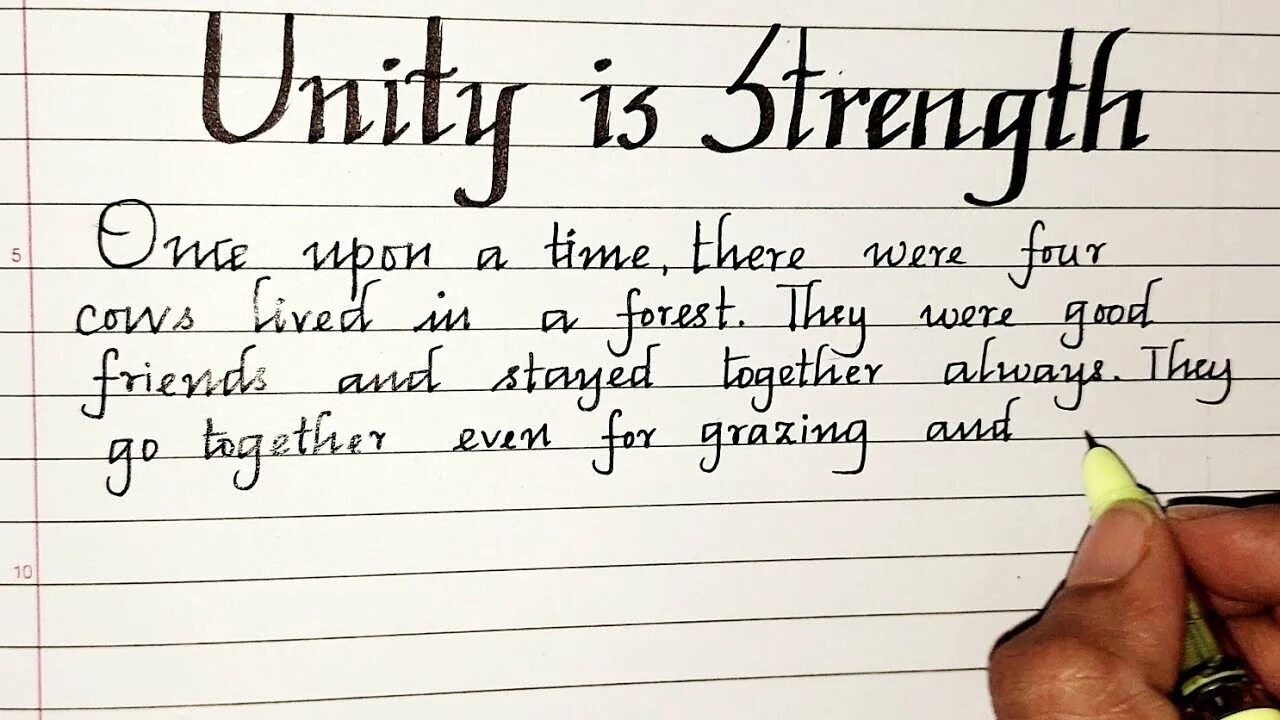 Unity is Strength
Once upon a time, there were four
5
cows lived in a forest. They were good
friends and stayed together always. They
go together even for grazing and
10